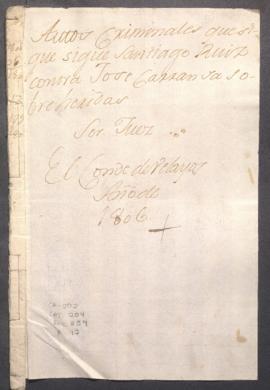 Autos Criminales que si
gue sigue Santiago Ruiz
contra Jose Carransa so
bre heridas
Sor. Juez
El Conde de Velayos
Año de
1806